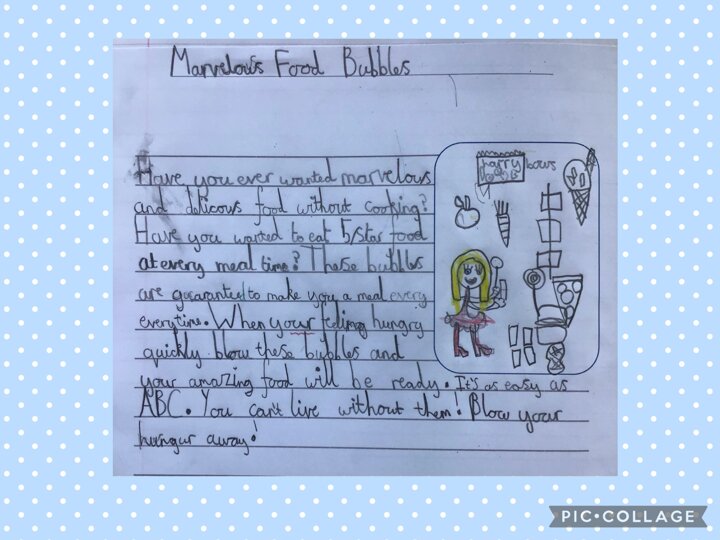 Marvelous Food Bubbles
Have you ever wanted marvelous
and dolicous food without cooking?
Have you wanted to eat 5/star food
at every meal time? These bubbles
are guaranted to make you a meal every
everytime. When your feeling hungry
quickly blow these bubbles and
your amazing food will be ready. It's as easy as
ABC. You can't live without them! Blow your
hungur away!
harry bows
PIC•COLLAGE